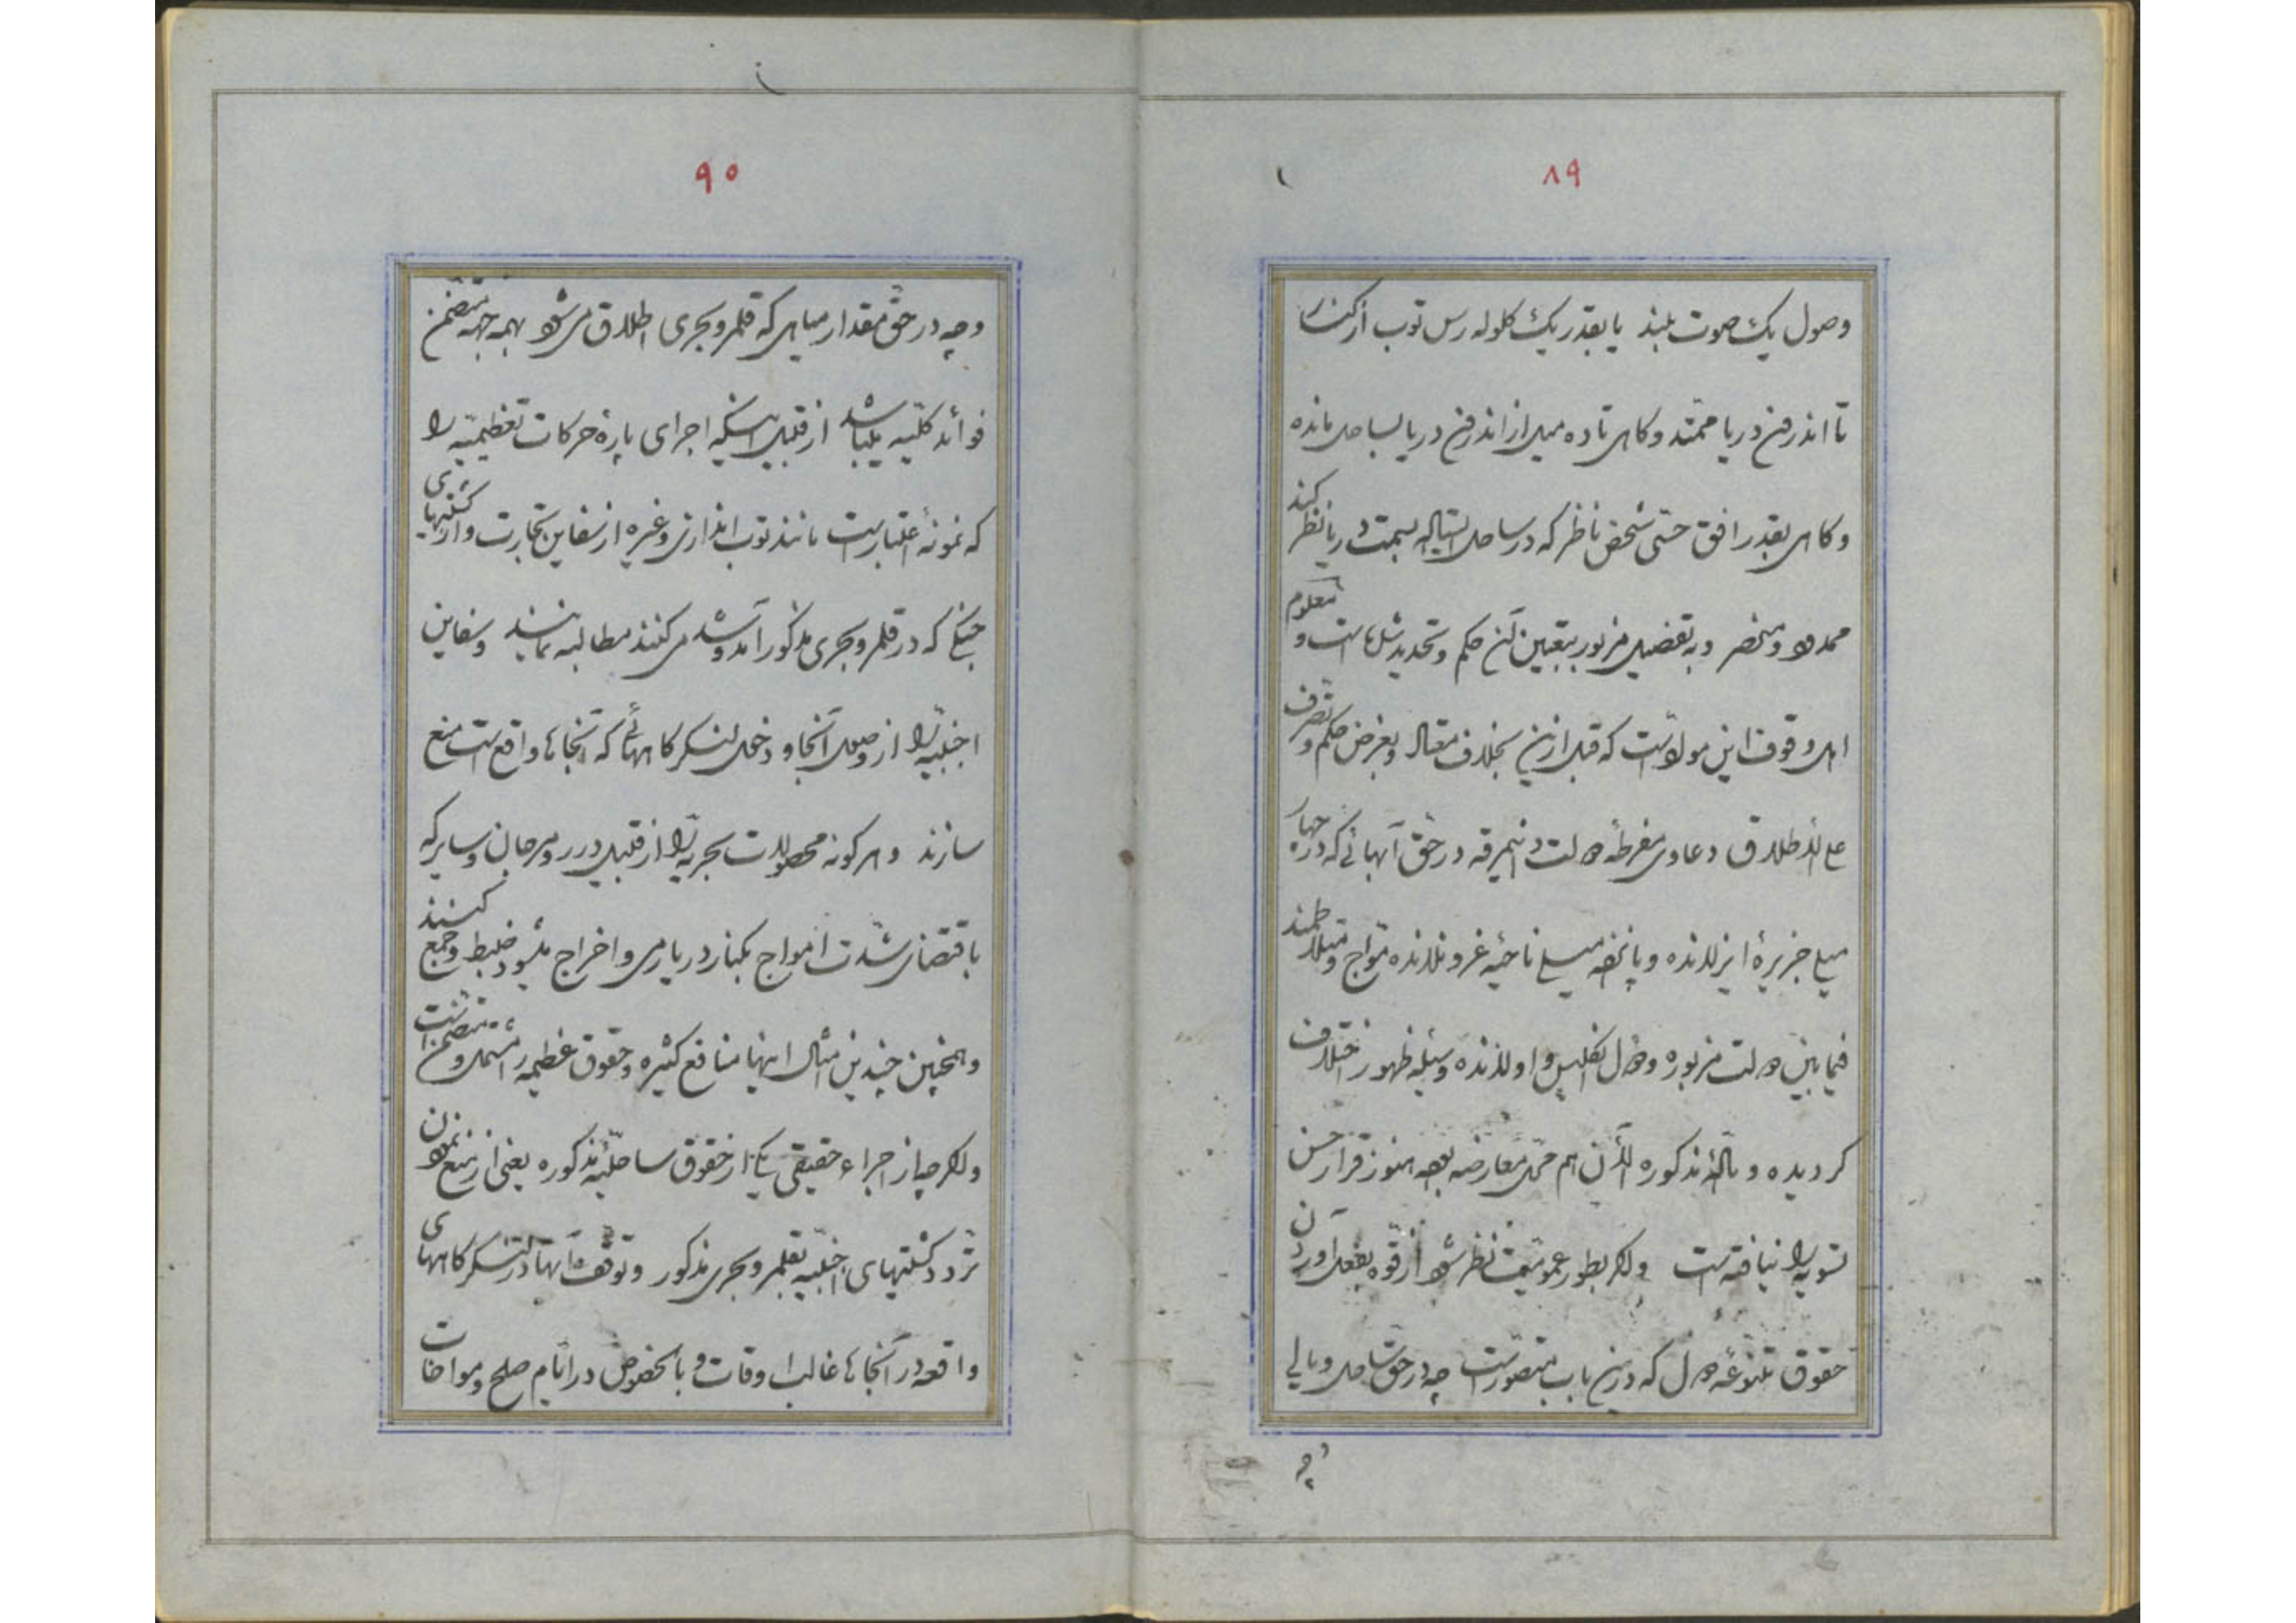 ۸۹
وصول یک صوت بلند یا بقدر یک کلوله رس توب از کنار
تا اندرون دریا ممتد و کاهی تا ده میل از اندرون دریا بساحل مانده
و کاهی بقدر افق حسّی شخص ناظر که در ساحل ایستاده بسمت دریا نظر کند
محدود و منحصر و به تفضیل مزبور بتعیین این حکم و تحدید مثل ما است و معلوم
اهل وقوف این مواد است که قبل ازین بخلاف مقال و بغرض حکم و تصرف
علی الاطلاق دعاوی مفرطهٔ دولت دانیمرقه در حق آبهائی که در چهار
میلی جزیرهٔ ایزلانده و پانزده میلی ناحیهٔ غرونلانده موّاج و متلاطمند
فیمابین دولت مزبوره و دول انکلیس و اولانده وسیلهٔ ظهور اختلاف
کردیده و مادّهٔ مذکوره الآن هم محل معارضه بوده هنوز قرار حسن
تسویه را نیافته است و اکر بطور عمومیت نظر شود از قوّه بفعل آوردن
حقوق متنوعهٔ دول که درین باب متصوّر است چه در حق ساحل و بالی
و چه
۹۰
و چه در حق مقدار میاهی که قلمرو بحری اطلاق می شود بهمه جهة متضمن
فوائد کلّیه میباشد از قبیل اینکه اجرای پارهٔ حرکات تعظیمیّه را
که نمونهٔ اعتبار است مانند توب اندازی و غیره از سفاین تجارت و از کشتیهای
جنکی که در قلمرو بحری مذکور آمد و شد می کنند مطالبه نمایند و سفاین
اجنبیّه را از وصول آنجا و دخول لنکرکاههائی که در آنجاها واقع است منع
سازند و هر کونه محصولات بحریّه را از قبیل درر و مرجان و سایر که
باقتضای شدت امواج بکنار دریا رمی و اخراج میشود ضبط و جمع کنند
و همچنین چندین امثال اینها منافع کثیره و حقوق عظیمه را مشتمل و متضمن است
ولکن چیاز اجراء حقیقی یکی از حقوق ساحلیّهٔ مذکوره یعنی از منع نمودن
تردد کشتیهای اجنبیّه بقلمرو بحری مذکور و توقف آنها در لنکرکاههای
واقعه در آنجاها غالب اوقات و بالخصوص در ایّام صلح و مواخات